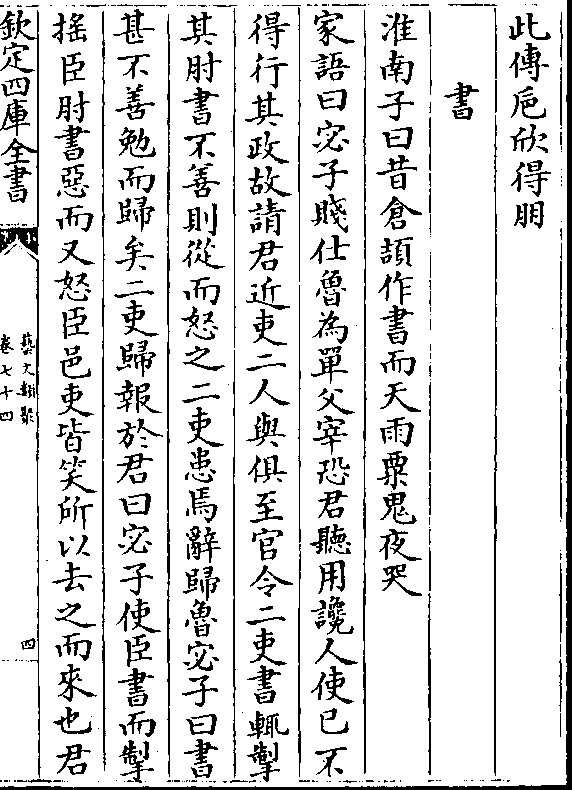 此傳卮欣得朋
書
淮南子曰昔倉頡作書而天雨粟鬼夜哭
家語曰宓子賤仕魯為單父宰恐君聽用讒人使已不
得行其政故請君近吏二人與俱至官令二吏書輒掣
其肘書不善則從而怒之二吏患焉辭歸魯宓子曰書
甚不善勉而歸矣二吏歸報於君曰宓子使臣書而掣
搖臣肘書惡而又怒臣邑吏皆笑所以去之而來也君
欽定四庫全書
藝文類聚
卷七十四
四